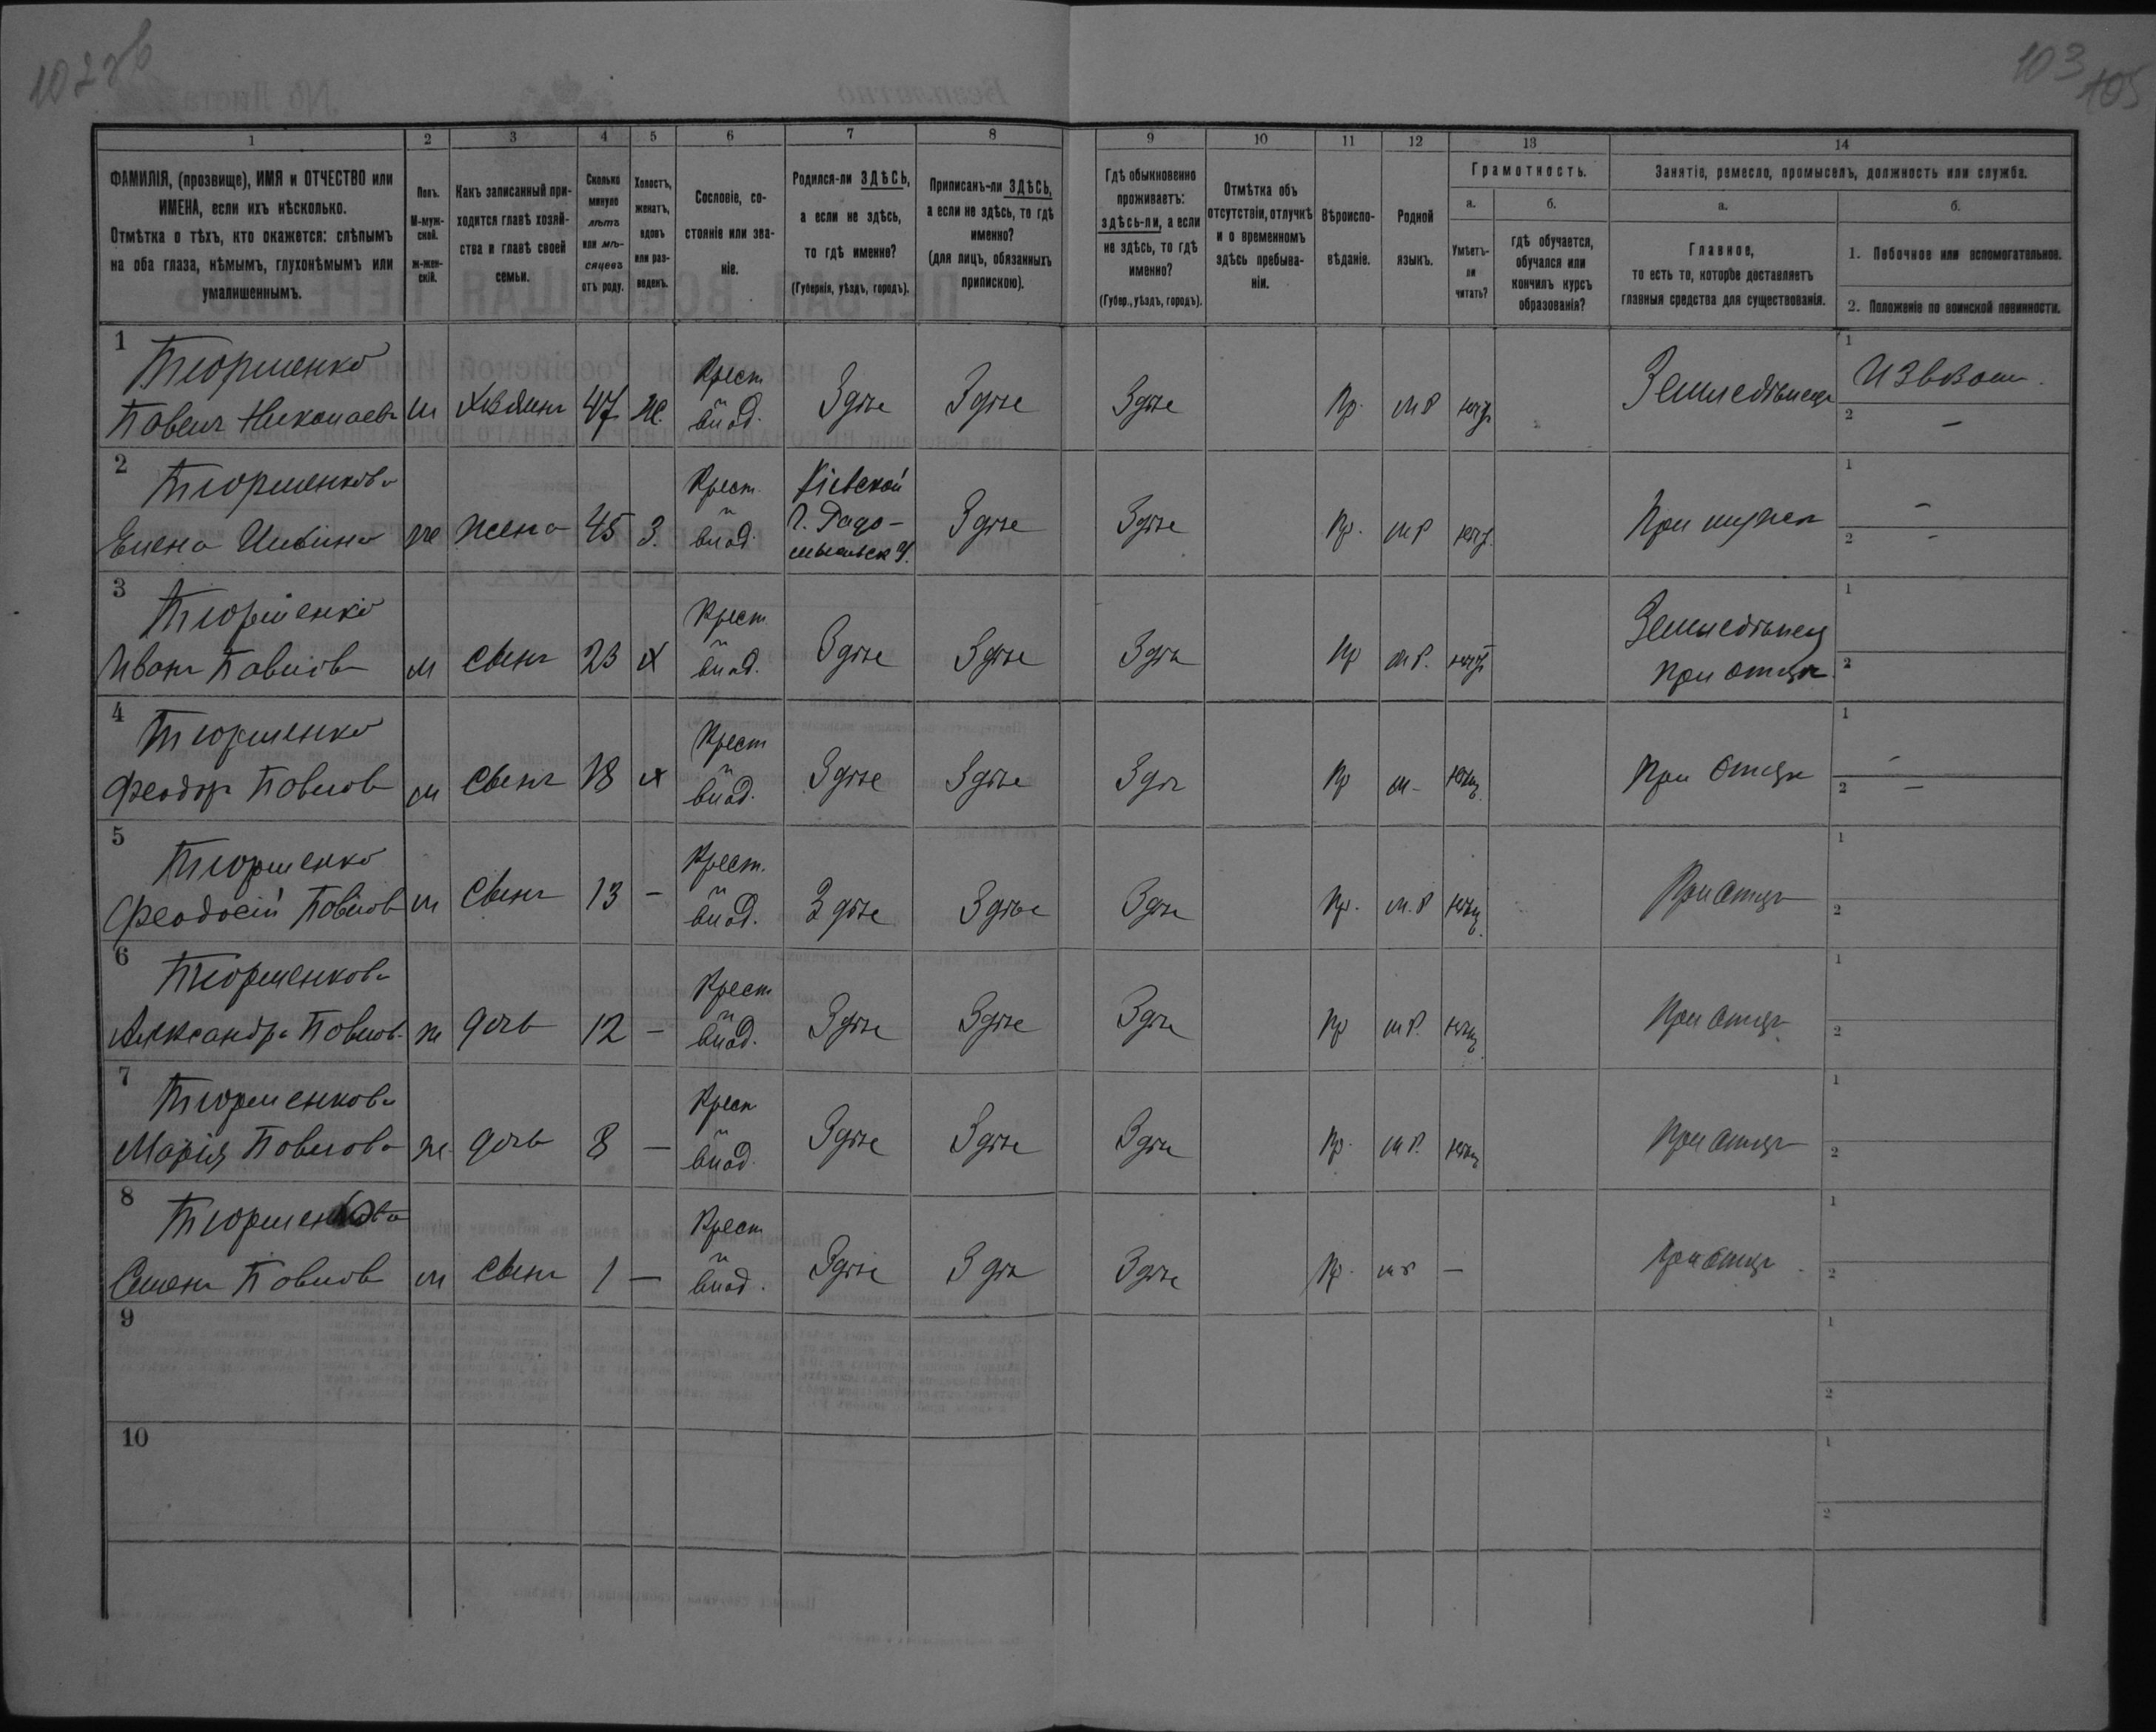 102 об
103
105
1
2
3
4
5
6
7
8
9
10
11
12
13
14
ФАМИЛІЯ, (прозвище), ИМЯ и ОТЧЕСТВО или
ИМЕНА, если ихъ нѣсколько.
Отмѣтка о тѣхъ, кто окажется: слѣпымъ
на оба глаза, нѣмымъ, глухонѣмымъ или
умалишеннымъ.
Полъ.
М-муж-
ской.
ж-жен-
скій.
Какъ записанный при-
ходится главѣ хозяй-
ства и главѣ своей
семьи.
Сколько
минуло
лѣтъ
или мѣ-
сяцевъ
отъ роду.
Холостъ,
женатъ,
вдовъ
или раз-
веденъ.
Сословіе, со-
стояніе или зва-
ніе.
Родился-ли ЗДѢСЬ,
а если не здѣсь,
то гдѣ именно?
(Губернія, уѣздъ, городъ).
Приписанъ-ли ЗДѢСЬ,
а если не здѣсь, то гдѣ
именно?
(для лицъ, обязанныхъ
припискою).
Гдѣ обыкновенно
проживаетъ:
здѣсь-ли, а если
не здѣсь, то гдѣ
именно?
(Губер., уѣздъ, городъ).
Отмѣтка объ
отсутствіи, отлучкѣ
и о временномъ
здѣсь пребыва-
ніи.
Вѣроиспо-
вѣданіе.
Родной
языкъ.
Грамотность.
а.
Умѣетъ-
ли
читать?
б.
гдѣ обучается,
обучался или
кончилъ курсъ
образованія?
Занятіе, ремесло, промыселъ, должность или служба.
а.
Главное,
то есть то, которое доставляетъ
главныя средства для существованія.
б.
1. Побочное или вспомогательное.
2. Положеніе по воинской повинности.
1
Павелъ Николаевъ м 47 ж. Крест. влад. Здѣсе Здѣсе Здѣсе Пр. м р Земледѣлецъ
1 Извозъ.
2 –
2
Елена м ж жена 45 З. Крест. влад. Кіевской г. Радо-мысльск у. Здѣсе Здѣсе Пр. м р При мужѣ
1 –
2 –
3
Иванъ Павловъ м сынъ 23 х Крест влад. Здѣсе Здѣсе Здѣсѣ Пр м р. Земледѣлец при отцѣ
1
2
4
Феодоръ Павлов м сынъ 18 х Крест влад. Здѣсе Здѣсе Здѣс Пр м – При отцѣ
1 –
2 –
5
Феодосій Павлов м сынъ 13 – Крест. влад. Здѣсе Здѣсе Здѣсе Пр. м. р При отцѣ
1
2
6
Александра Павлов. ж дочь 12 – Крест влад. Здѣсе Здѣсе Здѣсе Пр м р. При отцѣ
1
2
7
Марія Павлова ж. дочь 8 – Крест влад. Здѣсе Здѣсе Здѣсе Пр. м р. При отцѣ
1
2
8
Семенъ Павлов м сынъ 1 – Крест влад. Здѣсе Здѣсе Здѣсе Пр. м р – При отцѣ
1
2
9
1
2
10
1
2